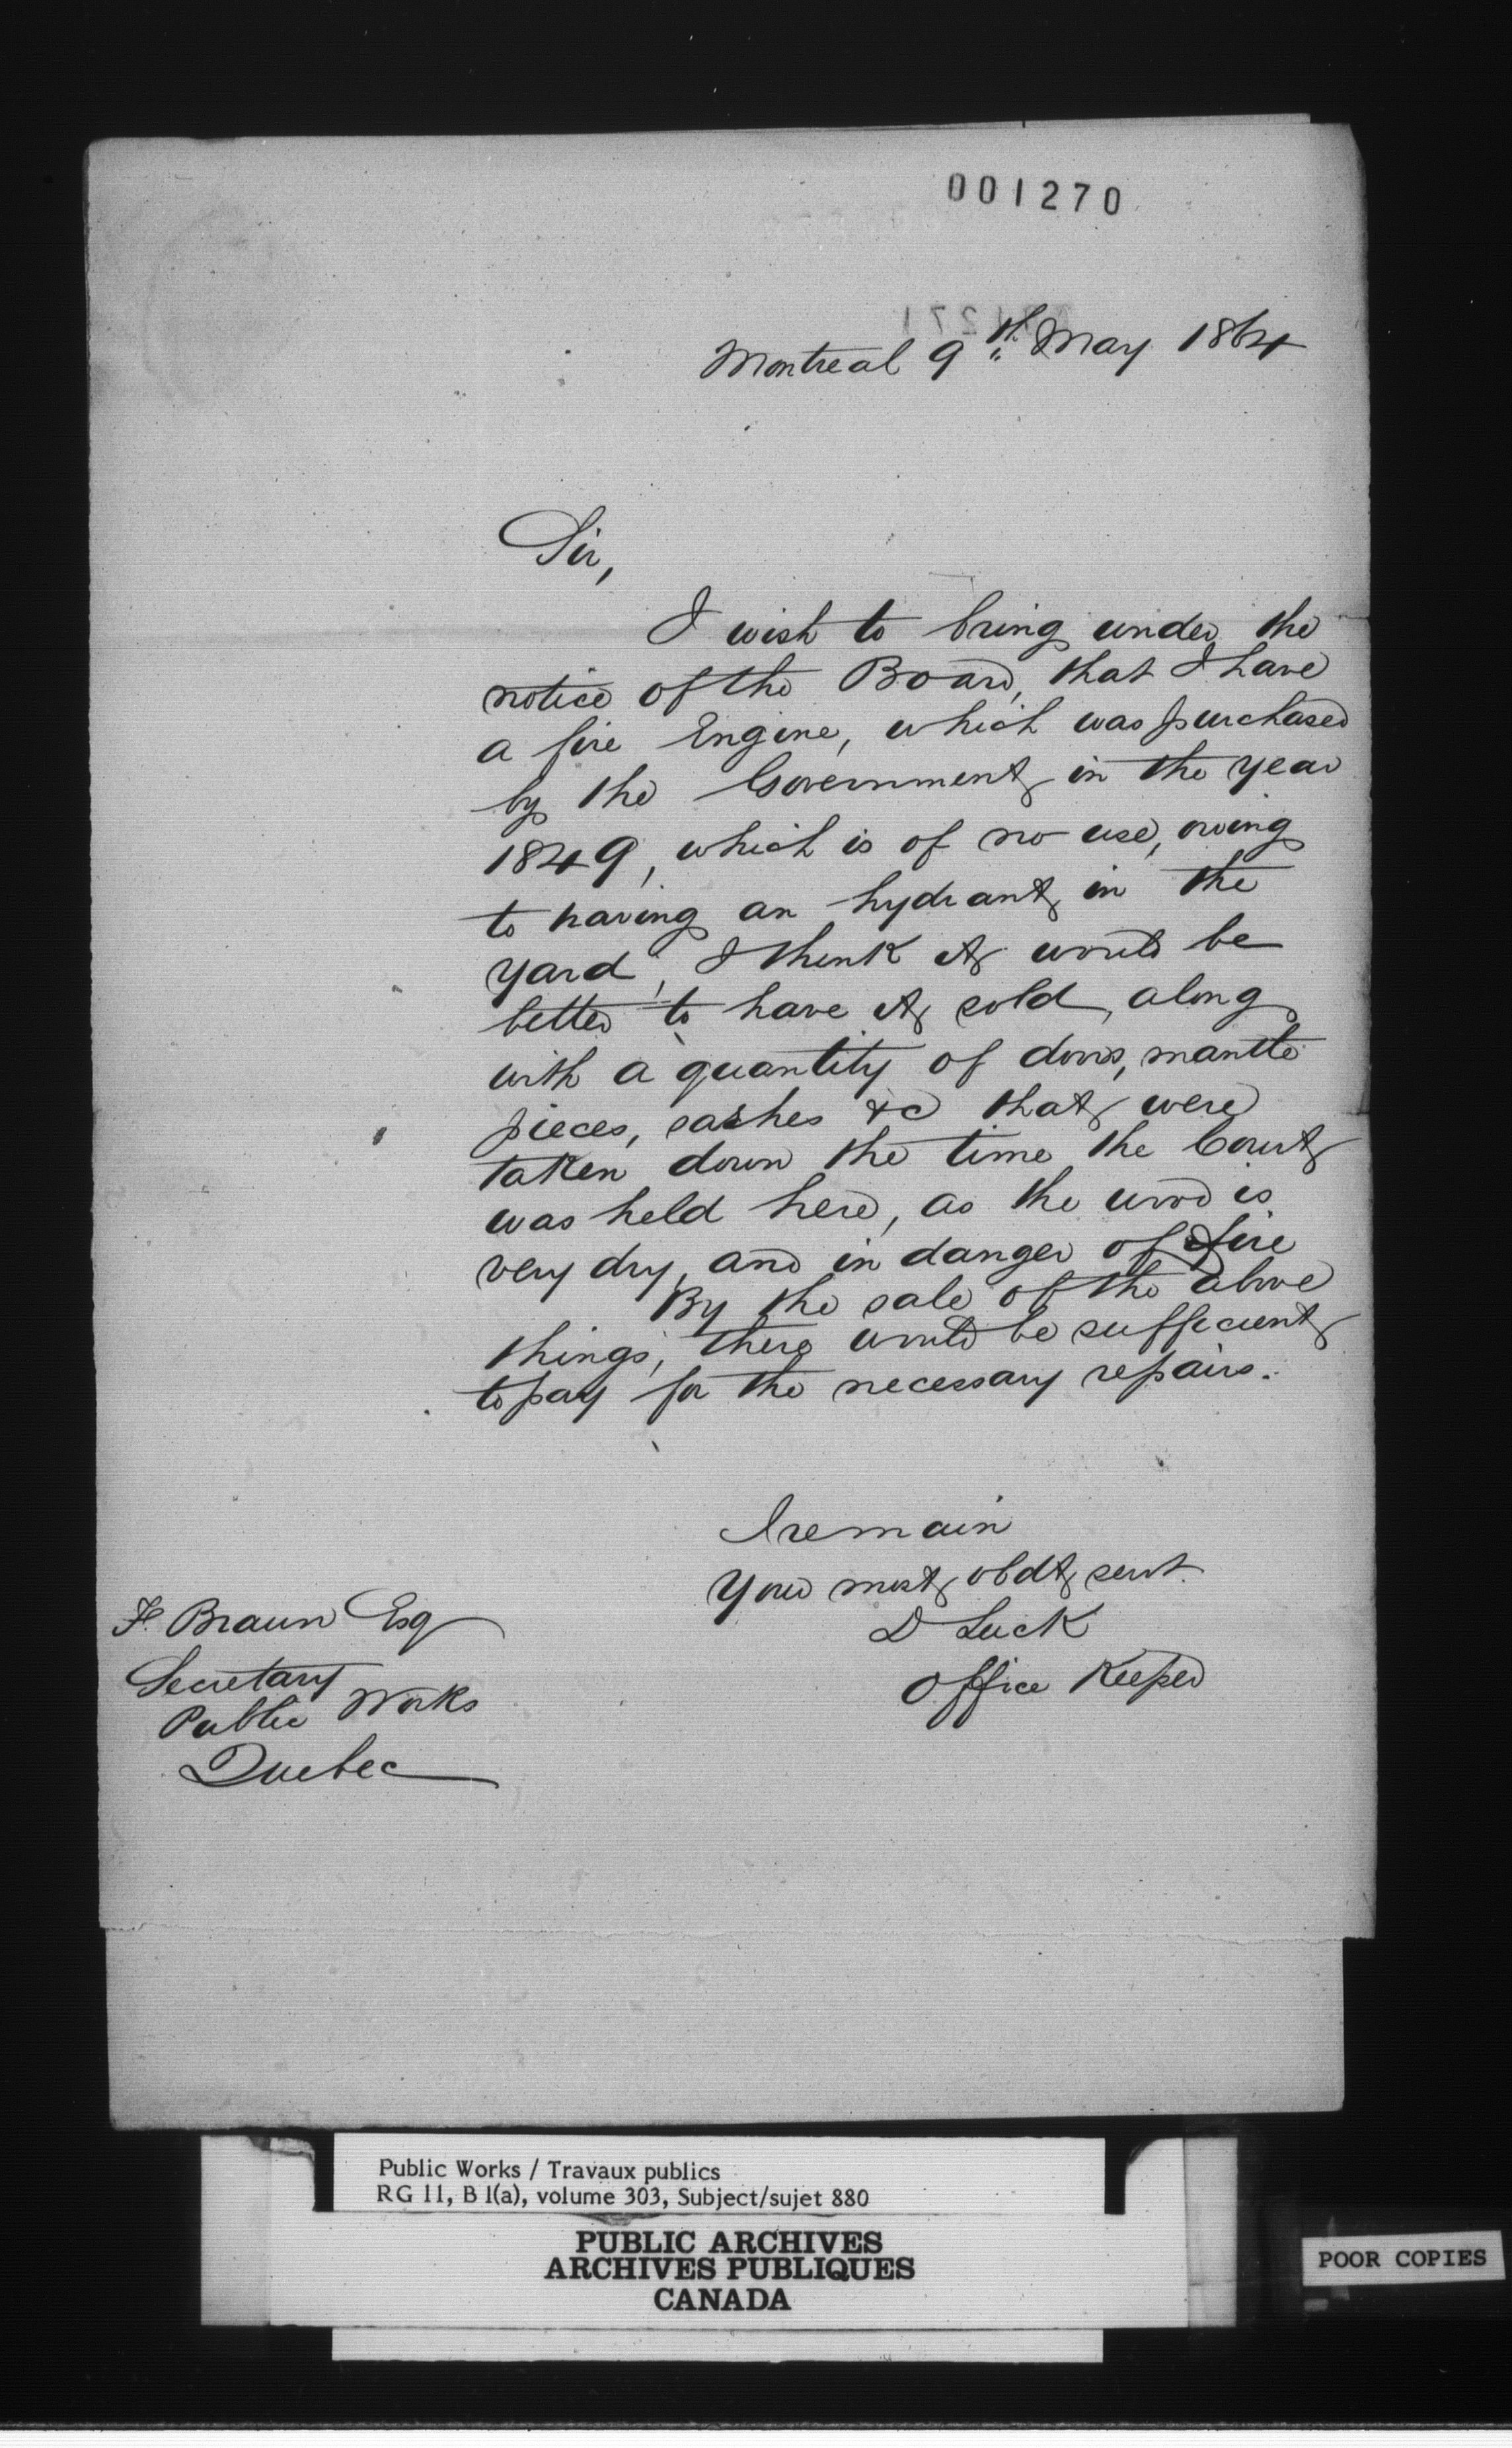 001270
Montreal 9th May 1864
Sir,
I wish to bring under the
notice of the Board, that I have
a fire Engine, which was purchased
by the Government in the year
1849, which is of no use, owing
to having an hydrant in the
yard, I think it would be
better to have it sold, along
with a quantity of doors, mantle
pieces, sashes &c that were
taken down the time the Court
was held here, as the wood is
very dry, and in danger of fire
By the sale of the above
things, there would be sufficient
to pay for the necessary repairs.
I remain
Your most obdt servt.
D Luck
Office Keeper
F. Braun Esq
Secretary
Public Works
Quebec
Public Works / Travaux publics
RG 11, B 1(a), volume 303, Subject/sujet 880
PUBLIC ARCHIVES
ARCHIVES PUBLIQUES
CANADA
POOR COPIES